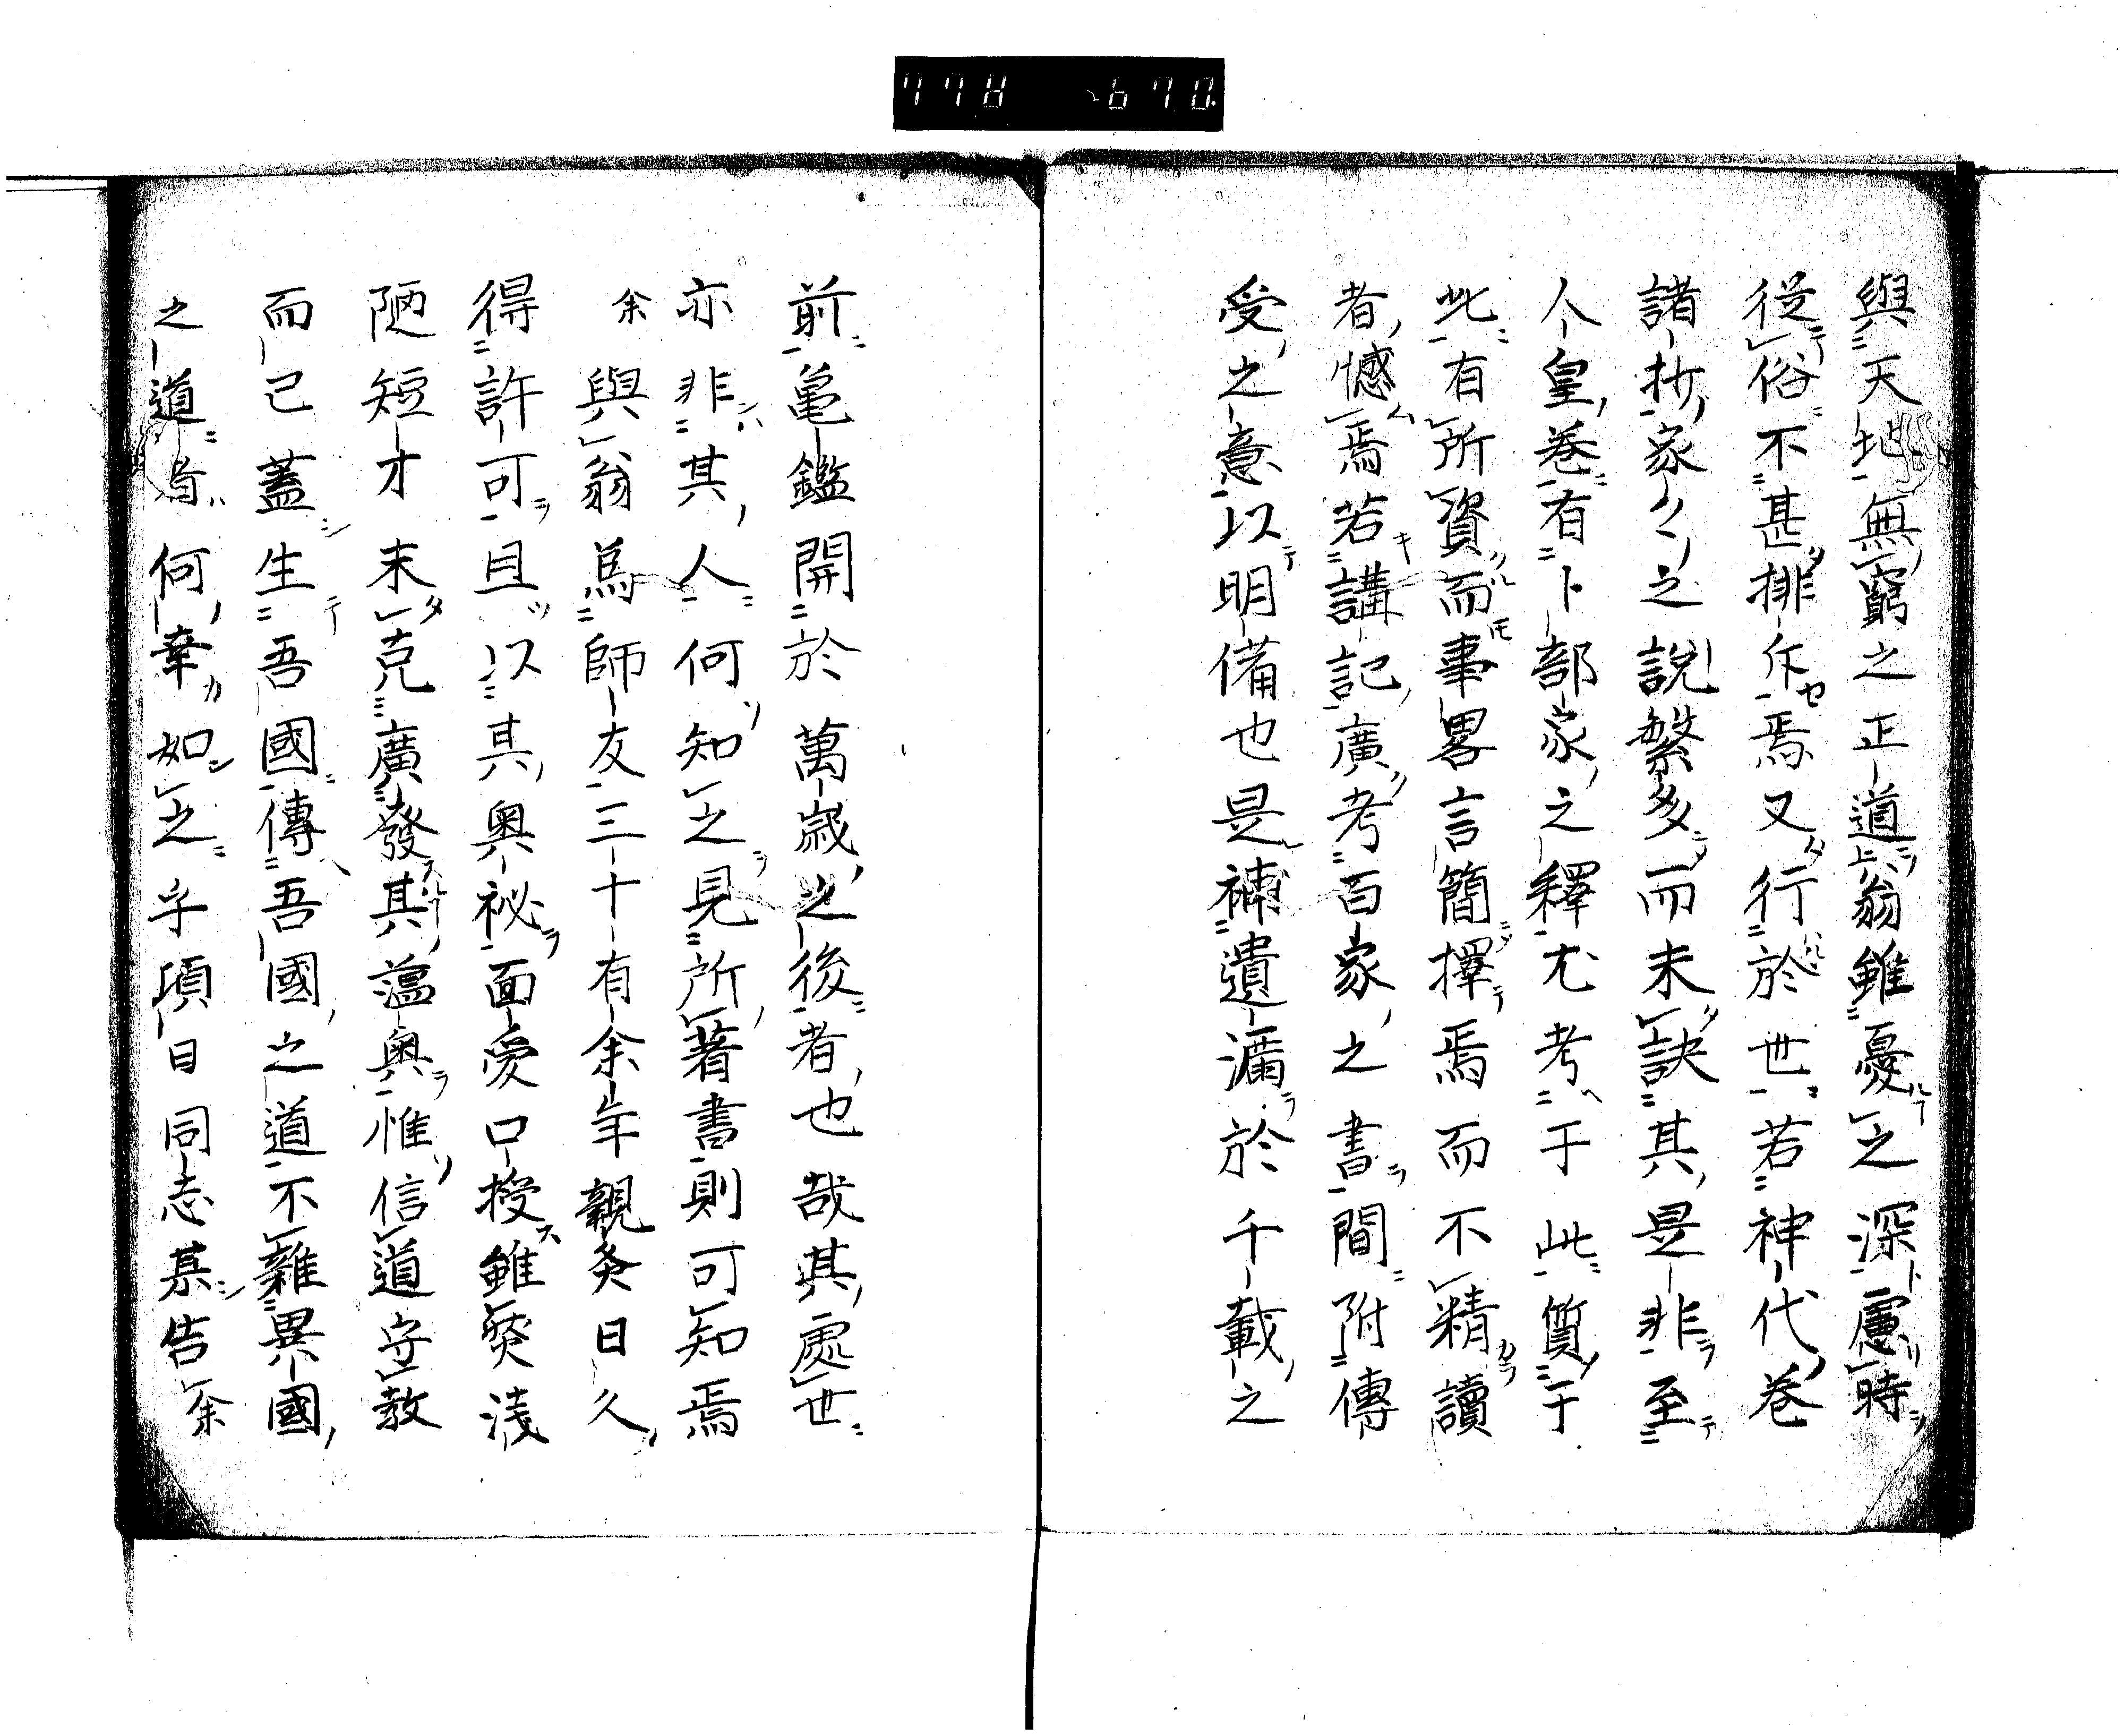 778 670.
與天地無窮之正道翁雖憂之深慮時
從俗不甚排斥焉又行於世若神代巻
諸抄家々之説繁多而未訣其是非至
人皇巻有卜部家之釋尤考于此質于
此有所資而事畧言簡擇焉而不精讀
者憾焉若講記廣考百家之書間附傳
受之意以明備也是補遺漏於千載之
前亀鑑開於萬歳之後者也哉其處世
亦非其人何知之見所著書則可知焉
余與翁爲師友三十有余年親炙日久
得許可且以其奥祕面受口授雖然淺
陋短才末克廣發其薀奥惟信道守教
而已蓋生吾國傳吾國之道不雜異國
之道者何幸如之乎頃日同志某告余